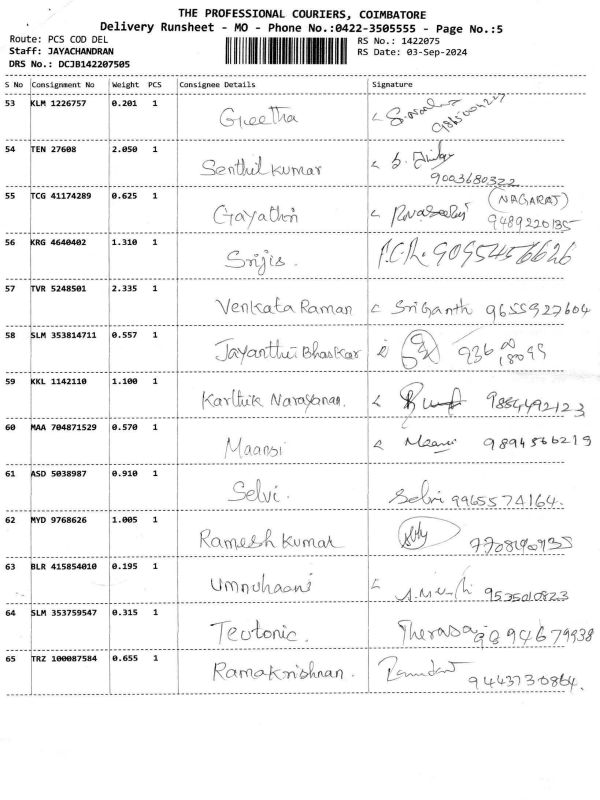 THE PROFESSIONAL COURIERS, COIMBATORE
Delivery Runsheet - MO - Phone No.:0422-3505555 - Page No.:5
Route: PCS COD DEL RS No.: 1422075
Staff: JAYACHANDRAN RS Date: 03-Sep-2024
DRS No.: DCJB142207505
S No Consignment No Weight PCS Consignee Details Signature
53 KLM 1226757 0.201 1 Greetha
54 TEN 27608 2.050 1 Senthil kumar
9003680322
(NAGARAJ)
55 TCG 41174289 0.625 1 Gayathri 9489220135
56 KRG 4640402 1.310 1 Srijis. P.C.R. 9095456626
57 TVR 5248501 2.335 1 Venkata Raman Sriganth 9655927604
58 SLM 353814711 0.557 1 Jayanthi Bhaskar
59 KKL 1142110 1.100 1 Karthik Narayanan. 9884492123
60 MAA 704871529 0.570 1 Maansi Maansi 9894566219
61 ASD 5038987 0.910 1 Selvi. Selvi 9965574164.
62 MYD 9768626 1.005 1 Ramesh kumar
63 BLR 415854010 0.195 1 Ummuhaani 9535010823
64 SLM 353759547 0.315 1 Teutonic. Therasa
65 TRZ 100087584 0.655 1 Ramakrishnan. 9443730864.